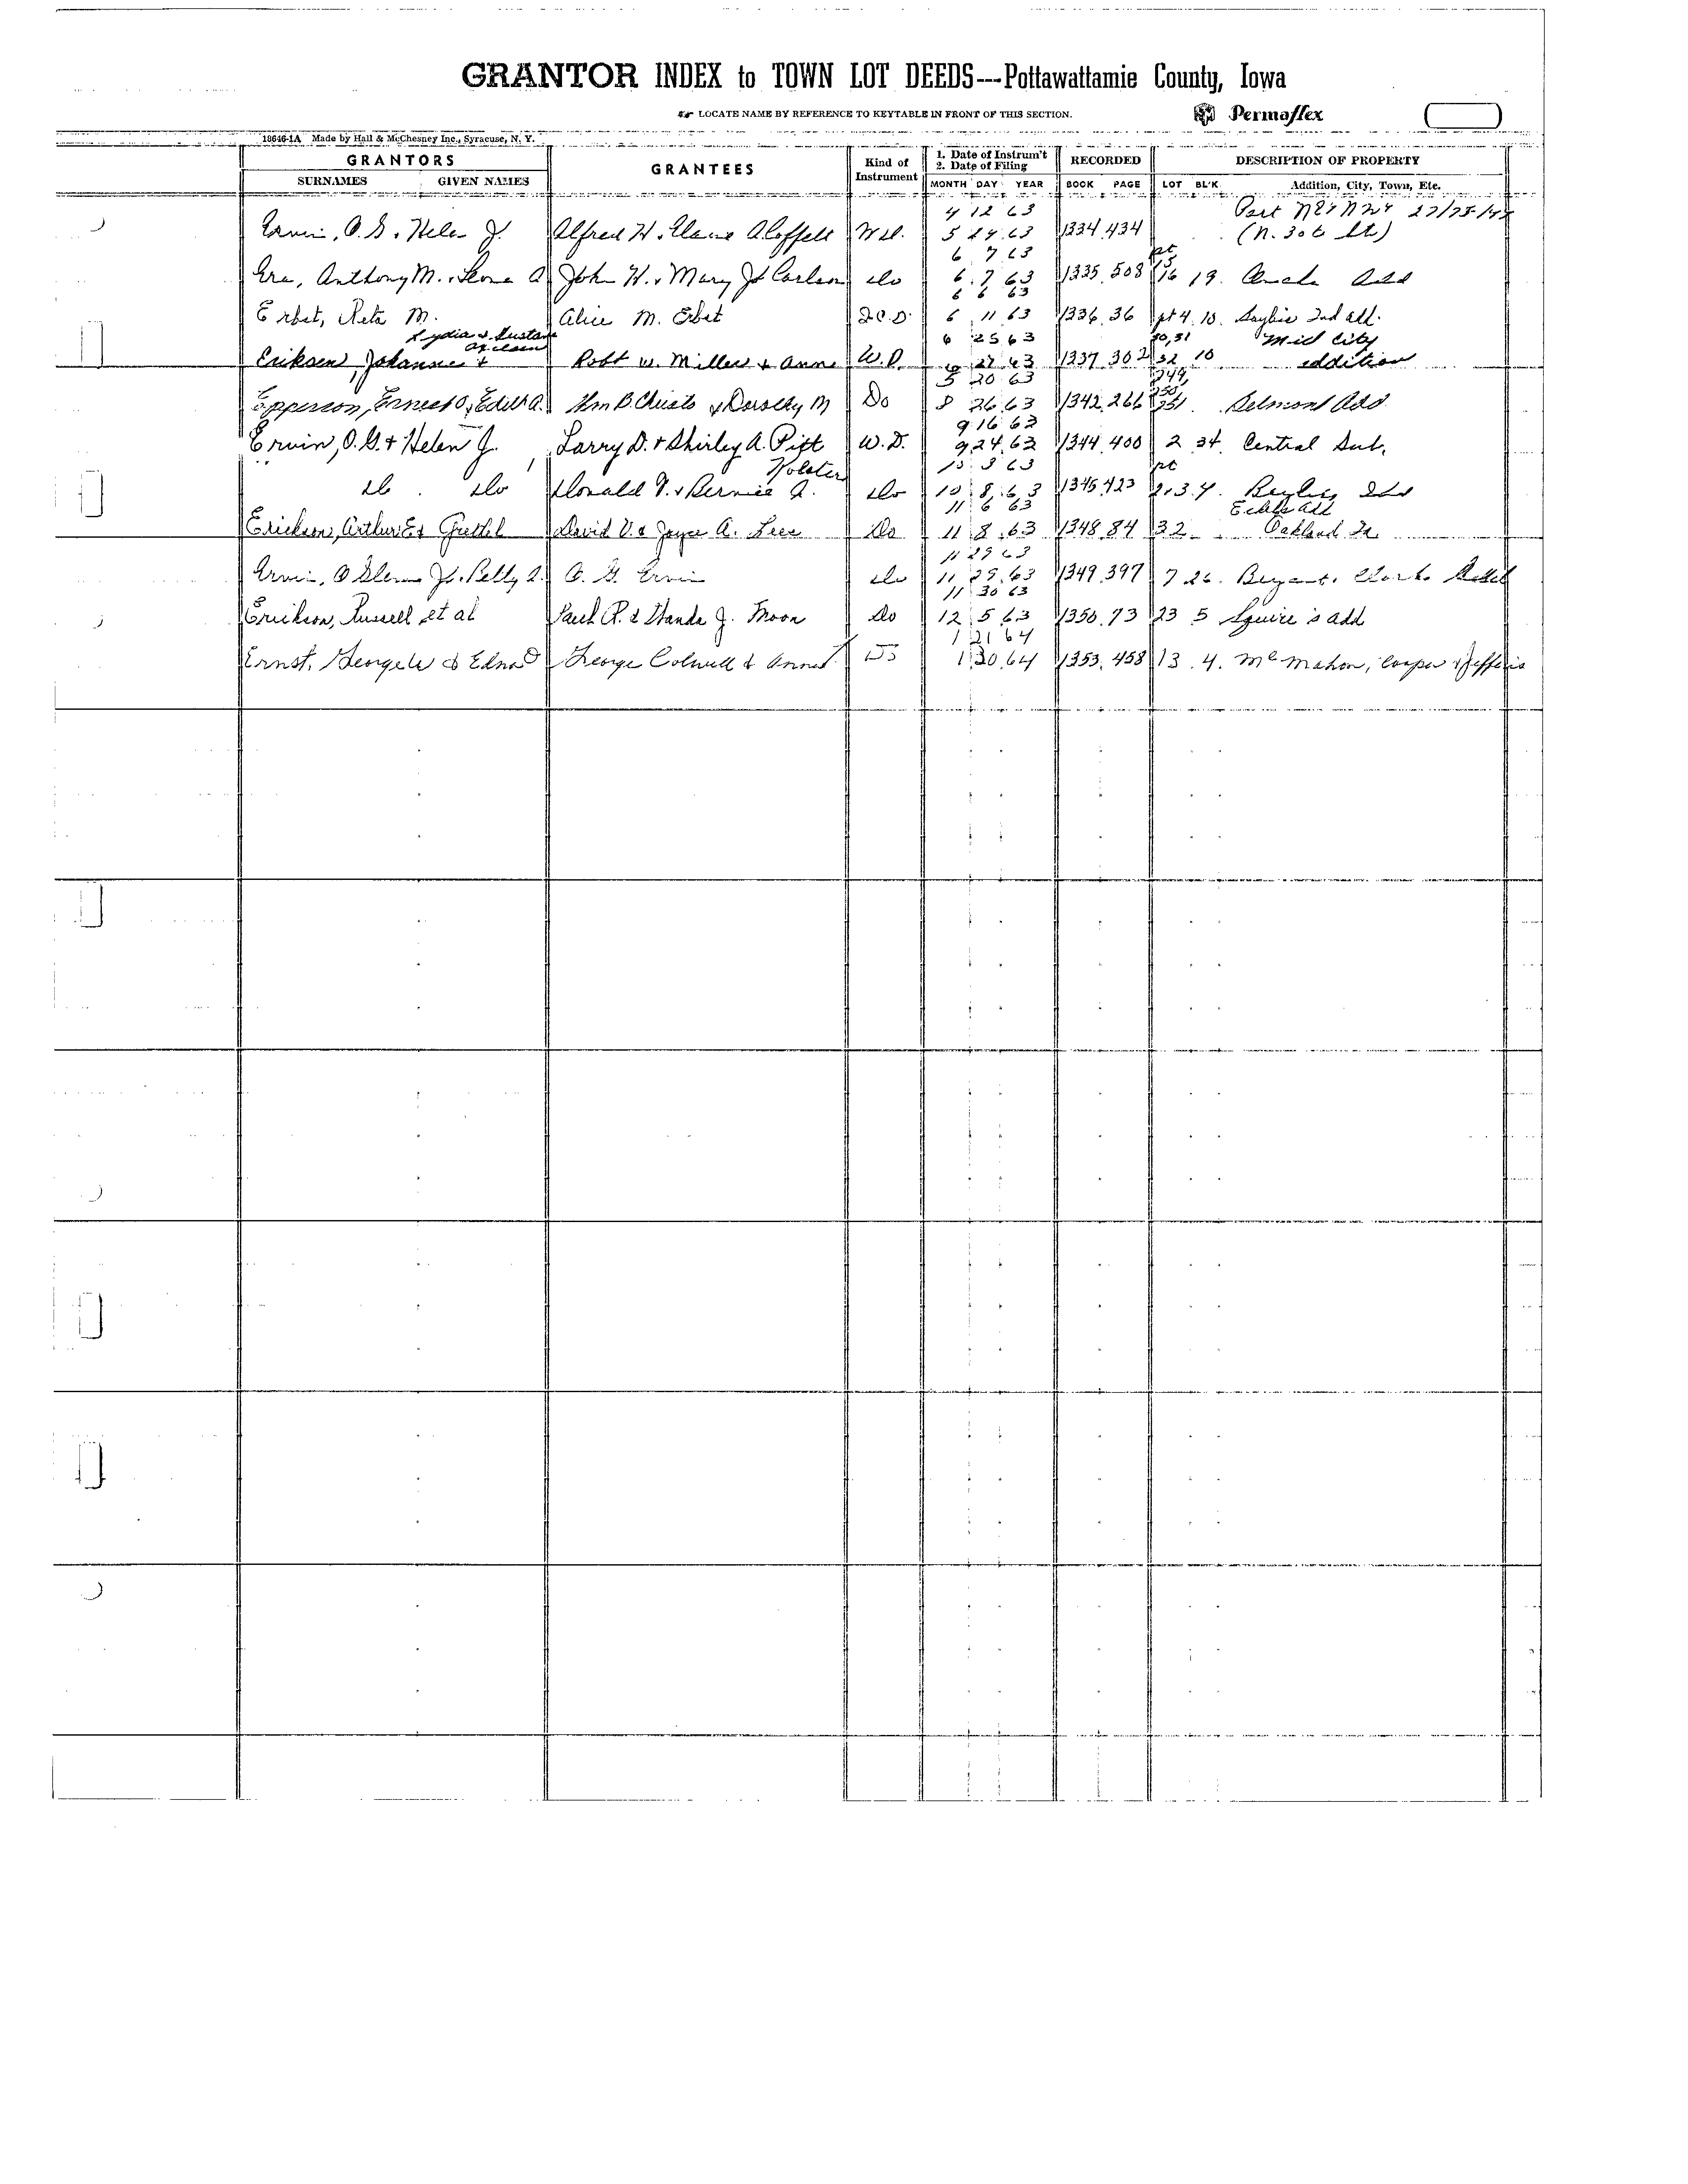 GRANTOR INDEX to TOWN LOT DEEDS---Pottawattamie County, Iowa
LOCATE NAME BY REFERENCE TO KEYTABLE IN FRONT OF THIS SECTION.
Permaflex
18646-1A Made by Hall & McChesney Inc., Syracuse, N. Y.
GRANTORS
SURNAMES GIVEN NAMES
GRANTEES
Kind of Instrument
1. Date of Instrum't
2. Date of Filing
MONTH DAY YEAR
RECORDED
BOOK PAGE
DESCRIPTION OF PROPERTY
LOT BL'K Addition, City, Town, Etc.
4 12 63 Part
Ervin, O. G. & Helen J. Alfred H. & Elaine A. Coffelt W.D. 5 24 63 1334 434 (N. 306 ft)
6 7 63 pt
Anthony M. & Leona A John H. & Mary Jo Carlson do 6 7 63 1335 508 16 19 Omaha Add
6 6 63
Erbet, Reta M. Alice M. Erbet Q.C.D. 6 11 63 1336 36 pt 4 10 Bayliss 2nd add.
Lydia & Gustav 6 25 63 30,31 Mid City
Eriksen, Johanne & Robt W. Miller & Anna W.D. 6 27 63 1337 302 32 10 addition
5 20 63 249,
Epperson, Ernest O. & Edith A. Wm B. Christo & Dorothy M Do 8 26 63 1342 266 250 251 Belmont Add
9 16 63
Ervin, O. G. & Helen J. Larry D. & Shirley A. Pitt W.D. 9 24 63 1344 400 2 34 Central Sub.
Holster 10 8 63 pt
do do Donald V. & Bernice A. do 10 8 63 1345 423 2,3 4 Bayliss 2nd
11 6 63 Eckles add
Erickson, Arthur E & Grethel David V. & Joyce A. Leer Do 11 8 63 1348 84 32 Oakland Ia.
11 29 63
Ervin, O Glenn Jr. & Betty O. G. Ervin do 11 29 63 1349 397 7 26 Bryant & Clark
11 30 63
Erickson, Russell et al Paul R. & Wanda J. Moon Do 12 5 63 1350 73 23 5 Squire's add
1 21 64
Ernst, George W & Edna D George Colwell & Anna 1 30 64 1353 458 13 4 McMahon, Cooper & Jefferis